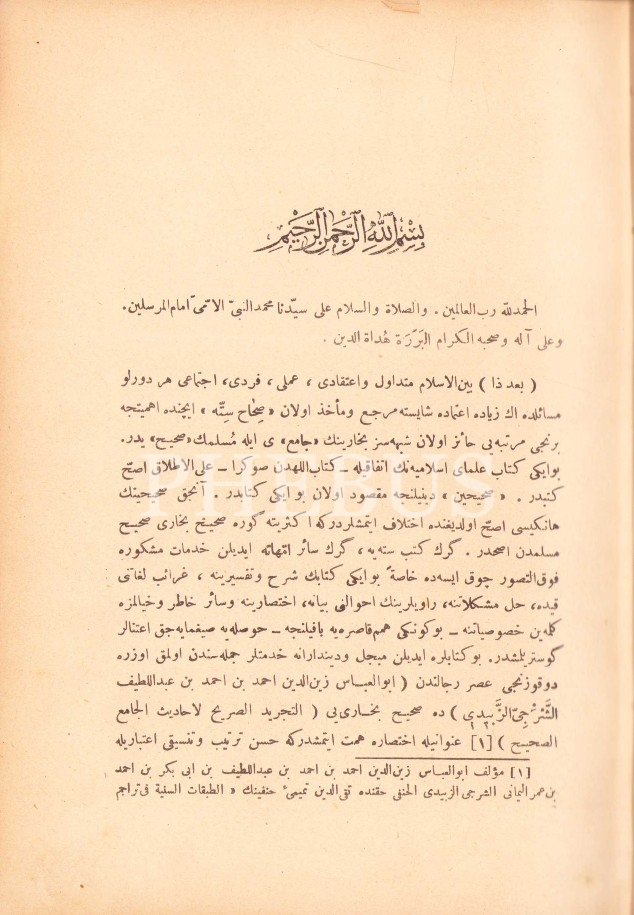 بِسْمِ اللّٰهِ الرَّحْمٰنِ الرَّحِيمِ
الحمدلله رب العالمین . والصلاة والسلام علی سیّدنا محمد النبیّ الامّیّ امام المرسلین.
وعلی آله وصحبه الکرام البَرَرَة هُداة الدین .
( بعد ذا ) بین‌الاسلام متداول واعتقادی ، عملی ، فردی، اجتماعی هر دورلو
مسائلده اك زیاده اعتماده شایسته مرجع ومأخذ اولان «صِحَاح سِتَّه » ایچنده اهمیتجه
برنجی مرتبه‌یی حائز اولان شبهه‌سز بخارینك «جامع» ی ایله مُسلمك «صحیح» یدر.
بو ایکی کتاب علمای اسلامیه‌نك اتفاقیله ــ کتاب‌اللهدن صوکرا ــ علی الاطلاق اصحّ
کتبدر . « صحیحین » دینیلنجه مقصود اولان بو ایکی کتابدر . آنجق صحیحینك
هانکیسی اصحّ اولدیغنده اختلاف ایتمشلردرکه اکثریته گوره صحیح بخاری صحیح
مسلمدن اصحدر . گرك کتب سته‌یه ، گرك سائر امّهاته ایدیلن خدمات مشکوره
فوق‌التصور چوق ایسه‌ده خاصةً بو ایکی کتابك شرح وتفسیرینه ، غرائب لغاتنی
قیده، حل مشکلاتنه، راویلرینك احوالنی بیانه، اختصارینه وسائر خاطر وخیالمزه
کلمه‌ین خصوصیاتنه ــ بوکونکی همم قاصره‌یه باقیلنجه ــ حوصله‌یه صیغمایه‌جق اعتنالر
گوستریلمشدر. بوکتابلره ایدیلن مبجل ودیندارانه خدمتلر جمله‌سندن اولمق اوزره
دوقوزنجی عصر رجالندن ( ابوالعباس زین‌الدین احمد بن احمد بن عبداللطیف
الشَّرْجِیّ الزَّبِیدی ) ده صحیح بخاری‌یی ( التجرید الصریح لاحادیث الجامع
الصحیح ) [١] عنوانیله اختصاره همت ایتمشدرکه حسن ترتیب وتنسیقی اعتباریله
[١] مؤلف ابوالعباس زین‌الدین احمد بن احمد بن عبداللطیف بن ابی بکر بن احمد
بن عمر الیمانی الشرجی الزبیدی الحنفی حقنده تقی الدین تمیمیء حنفینك « الطبقات السنیة فی تراجم
PHEBUS